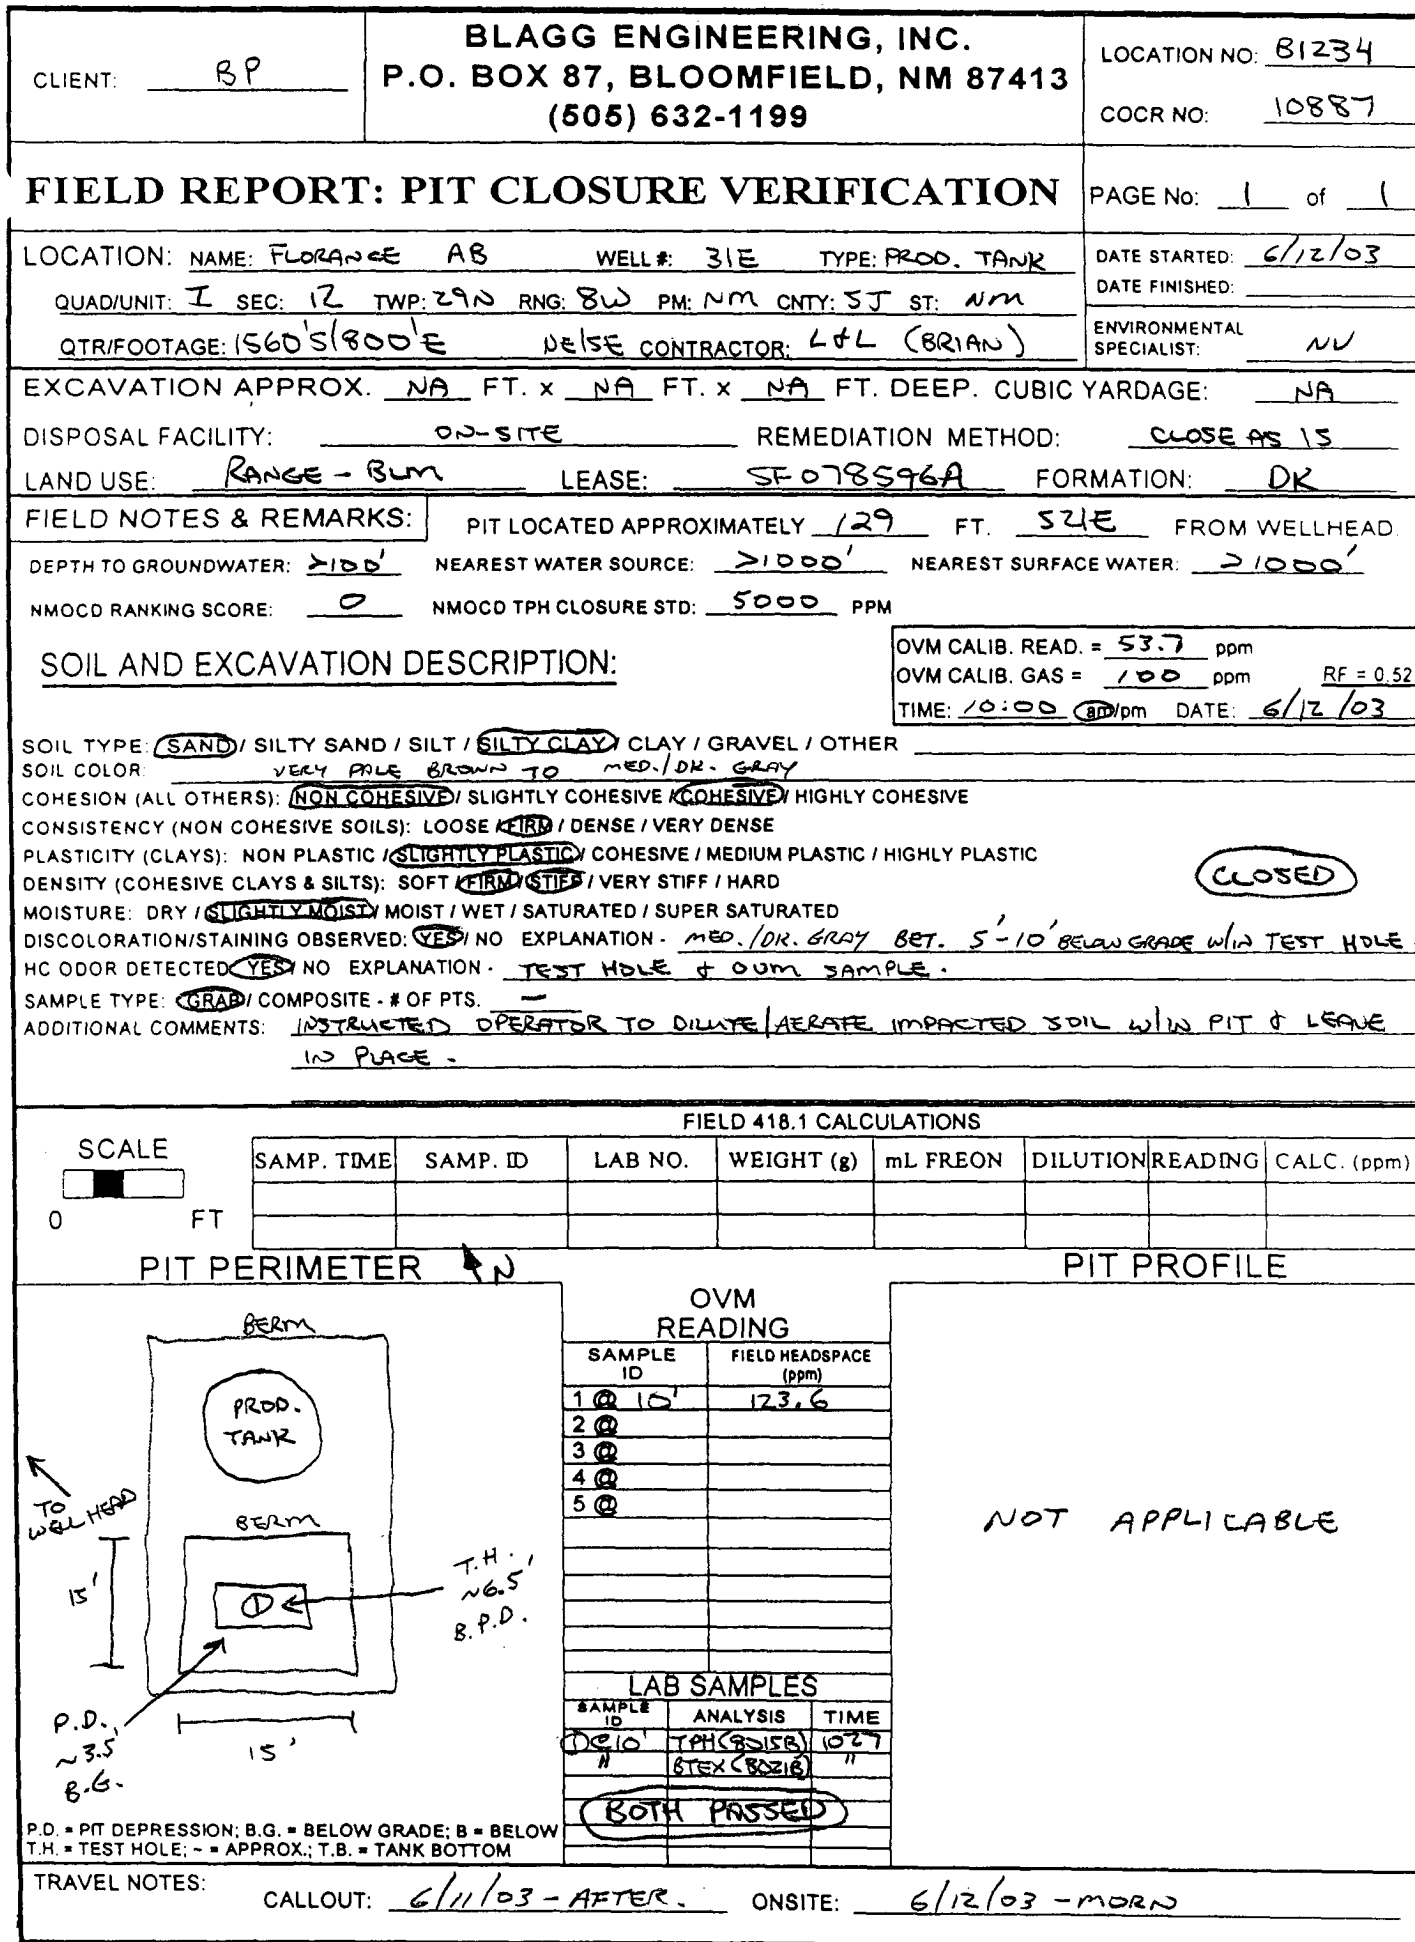 CLIENT: BP
BLAGG ENGINEERING, INC.
P.O. BOX 87, BLOOMFIELD, NM 87413
(505) 632-1199
LOCATION NO: B1234
COCR NO: 10887
FIELD REPORT: PIT CLOSURE VERIFICATION
PAGE No: 1 of 1
LOCATION: NAME: FLORANCE AB WELL #: 31E TYPE: PROD. TANK
QUAD/UNIT: I SEC: 12 TWP: 29N RNG: 8W PM: NM CNTY: SJ ST: NM
QTR/FOOTAGE: 1560'S/800'E NE/SE CONTRACTOR: L&L (BRIAN)
DATE STARTED: 6/12/03
DATE FINISHED:
ENVIRONMENTAL
SPECIALIST: NV
EXCAVATION APPROX. NA FT. x NA FT. x NA FT. DEEP. CUBIC YARDAGE: NA
DISPOSAL FACILITY: ON-SITE REMEDIATION METHOD: CLOSE AS IS
LAND USE: RANGE - BLM LEASE: SF078596A FORMATION: DK
FIELD NOTES & REMARKS: PIT LOCATED APPROXIMATELY 129 FT. S21E FROM WELLHEAD.
DEPTH TO GROUNDWATER: >100' NEAREST WATER SOURCE: >1000' NEAREST SURFACE WATER: >1000'
NMOCD RANKING SCORE: 0 NMOCD TPH CLOSURE STD: 5000 PPM
SOIL AND EXCAVATION DESCRIPTION:
OVM CALIB. READ. = 53.7 ppm
OVM CALIB. GAS = 100 ppm RF = 0.52
TIME: 10:00 am/pm DATE: 6/12/03
SOIL TYPE: SAND / SILTY SAND / SILT / SILTY CLAY / CLAY / GRAVEL / OTHER
SOIL COLOR: VERY PALE BROWN TO MED./DK. GRAY
COHESION (ALL OTHERS): NON COHESIVE / SLIGHTLY COHESIVE / COHESIVE / HIGHLY COHESIVE
CONSISTENCY (NON COHESIVE SOILS): LOOSE / FIRM / DENSE / VERY DENSE
PLASTICITY (CLAYS): NON PLASTIC / SLIGHTLY PLASTIC / COHESIVE / MEDIUM PLASTIC / HIGHLY PLASTIC
DENSITY (COHESIVE CLAYS & SILTS): SOFT / FIRM / STIFF / VERY STIFF / HARD
CLOSED
MOISTURE: DRY / SLIGHTLY MOIST / MOIST / WET / SATURATED / SUPER SATURATED
DISCOLORATION/STAINING OBSERVED: YES / NO EXPLANATION - MED./DK. GRAY BET. 5'-10' BELOW GRADE W/IN TEST HOLE.
HC ODOR DETECTED: YES / NO EXPLANATION - TEST HOLE & OVM SAMPLE.
SAMPLE TYPE: GRAB / COMPOSITE - # OF PTS. —
ADDITIONAL COMMENTS: INSTRUCTED OPERATOR TO DILUTE/AERATE IMPACTED SOIL W/IN PIT & LEAVE
IN PLACE.
FIELD 418.1 CALCULATIONS
SCALE
0 FT
SAMP. TIME SAMP. ID LAB NO. WEIGHT (g) mL FREON DILUTION READING CALC. (ppm)
PIT PERIMETER N
BERM
PROD.
TANK
TO
WELL HEAD
BERM
15'
1
T.H.
~6.5'
B.P.D.
P.D.
~3.5'
B.G.
15'
P.D. = PIT DEPRESSION; B.G. = BELOW GRADE; B = BELOW
T.H. = TEST HOLE; ~ = APPROX.; T.B. = TANK BOTTOM
OVM
READING
SAMPLE ID FIELD HEADSPACE (ppm)
1 @ 10' 123.6
2 @
3 @
4 @
5 @
LAB SAMPLES
SAMPLE ID ANALYSIS TIME
1 @ 10' TPH (8015B) 1027
" BTEX (8021B) "
BOTH PASSED
PIT PROFILE
NOT APPLICABLE
TRAVEL NOTES: CALLOUT: 6/11/03 - AFTER. ONSITE: 6/12/03 - MORN